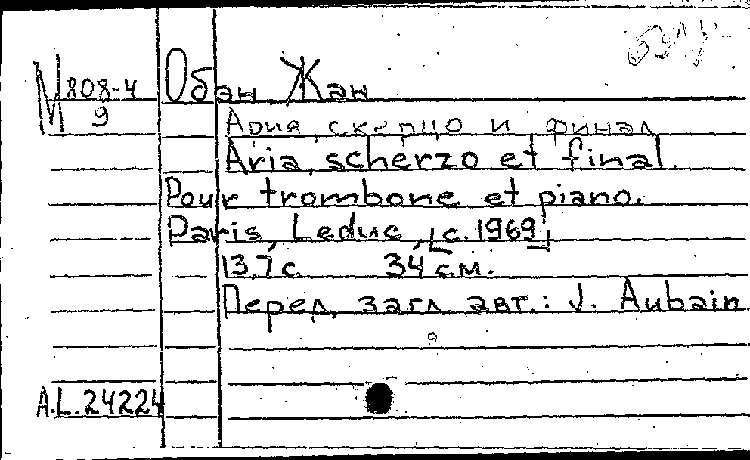 М 808-4
9
Обан Жан
Ария, скерцо и финал
Aria, scherzo et final.
Pour trombone et piano.
Paris, Leduc, [c. 1969]
13,7 с. 34 см.
Перед загл. авт.: J. Aubain
A.L. 24224